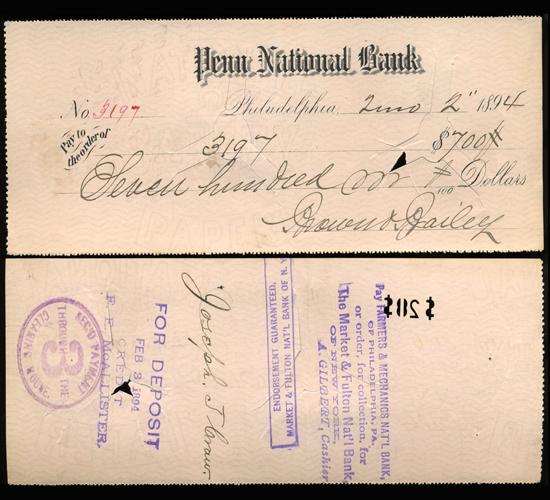 Penn National Bank
No. 3197 Philadelphia, 2mo 2" 1894
Pay to
the order of
3197 $700
Seven hundred Dollars
100
Brown & Bailey
REC'D PAYMENT
THROUGH THE
3
CLEARING HOUSE
F. F. McALLISTER
CREDIT
FEB 3 1894
FOR DEPOSIT
Joseph. T.
ENDORSEMENT GUARANTEED,
MARKET & FULTON NAT'L BANK OF N.Y.
Pay FARMERS & MECHANICS NAT'L BANK,
OF PHILADELPHIA, PA.
or order, for collection, for
The Market & Fulton Nat'l Bank,
OF NEW YORK.
A. GILBERT, Cashier